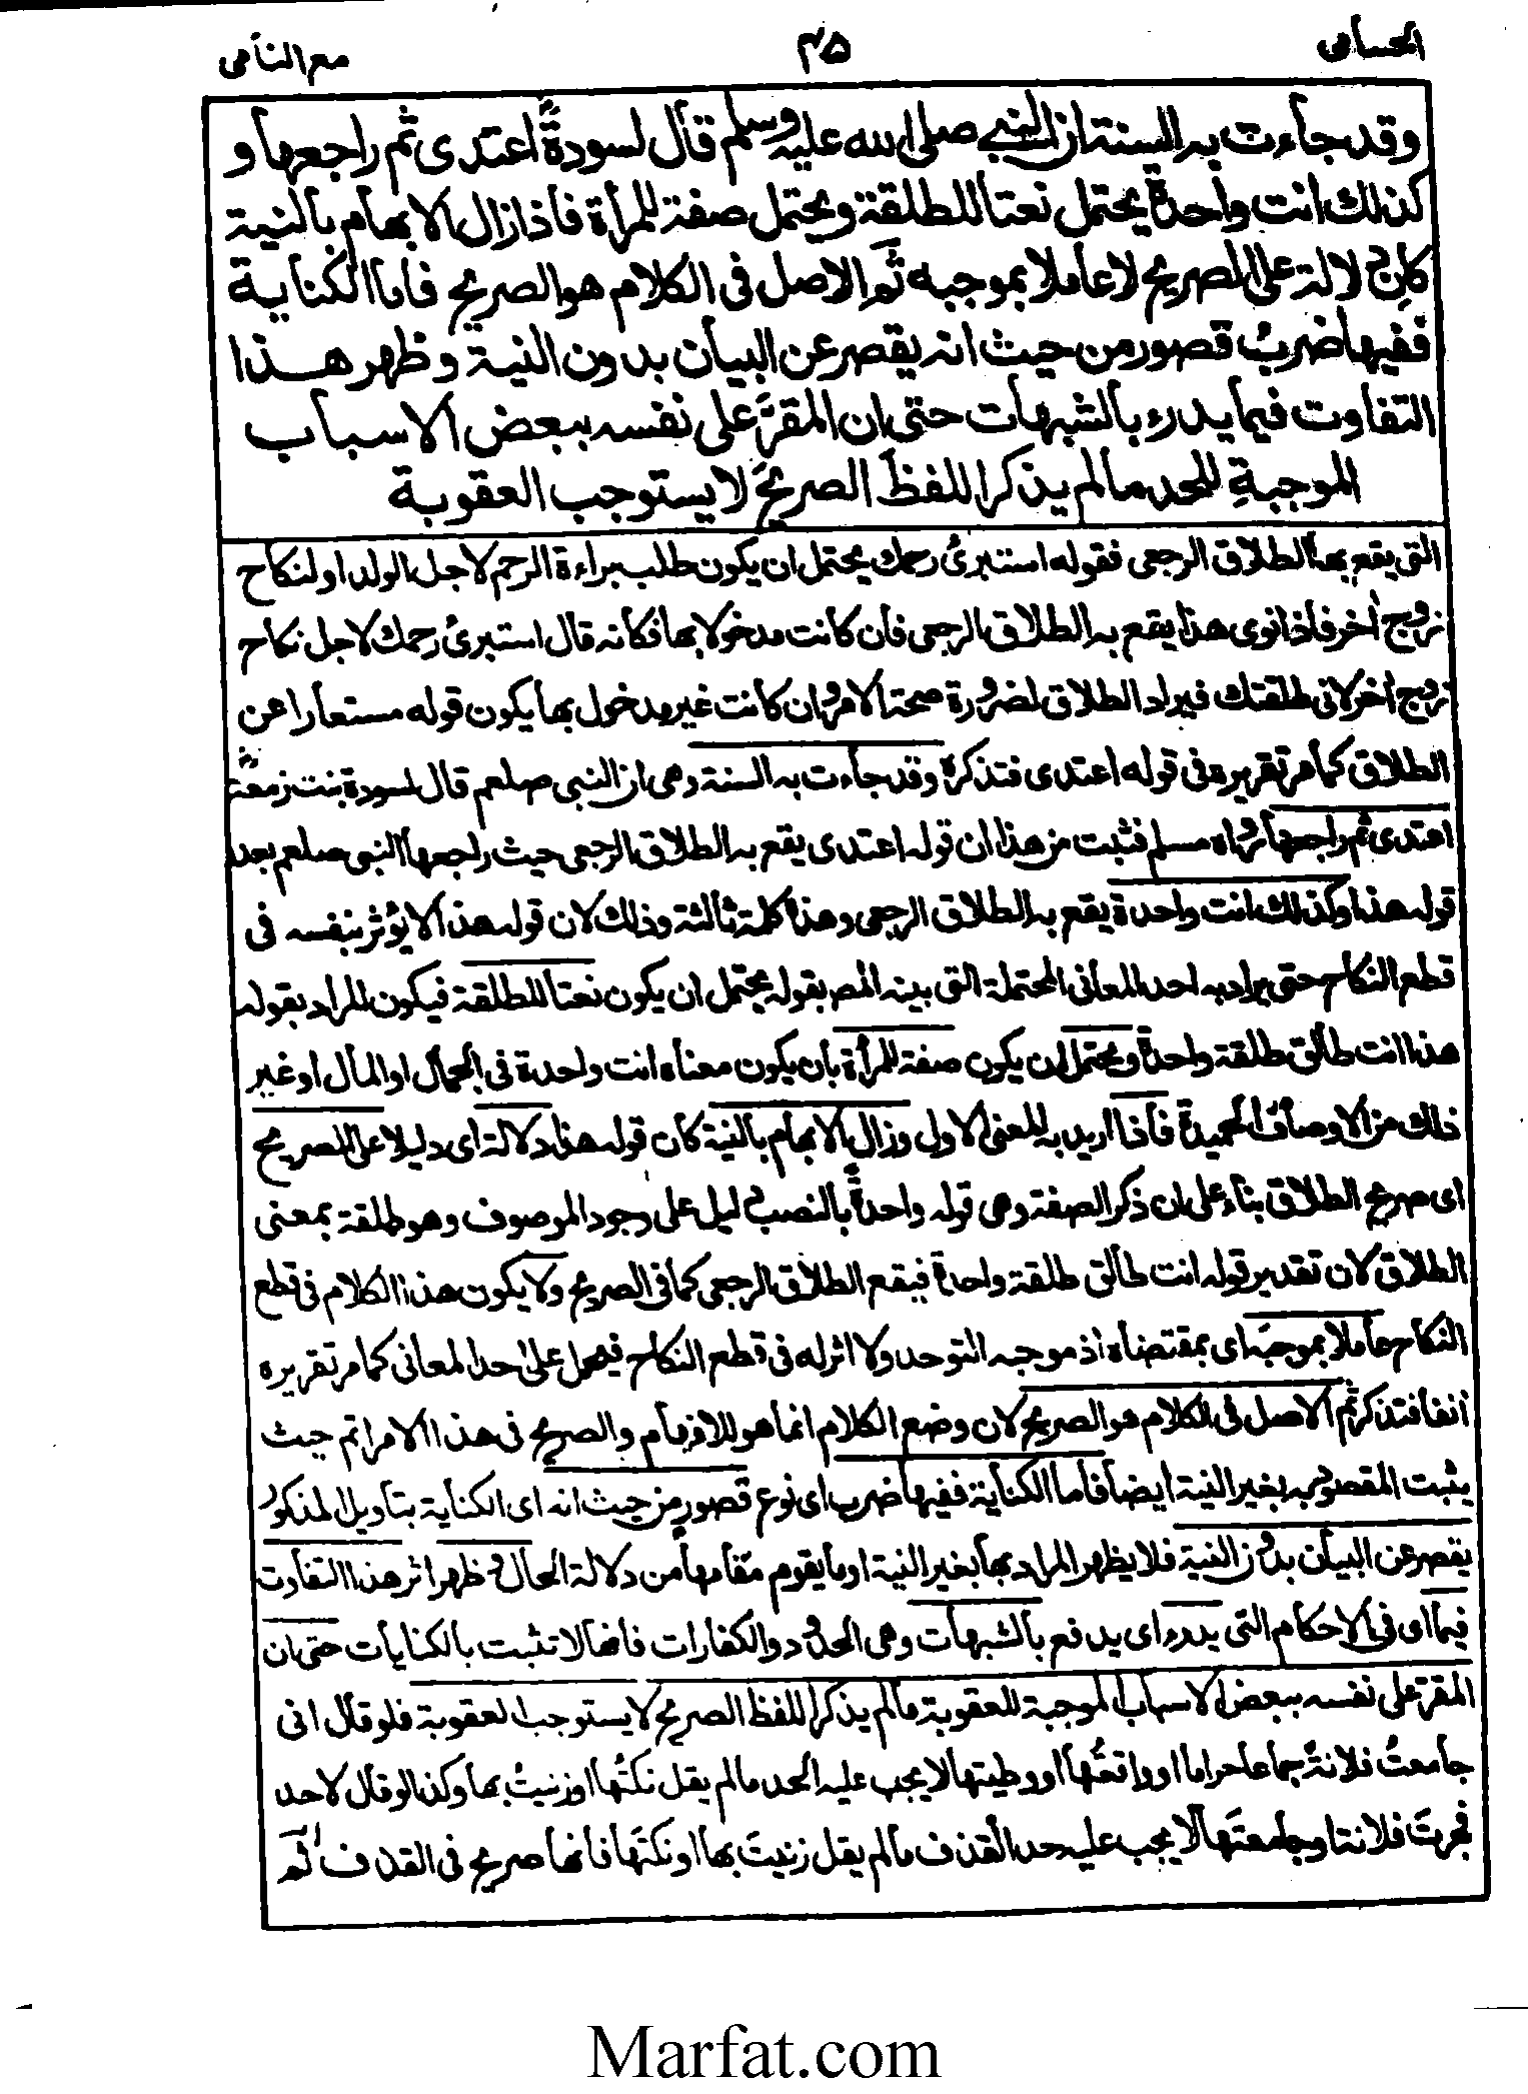 الحسامی ۴۵ مع النامی
وقد جاءت به السنة ان النبي صلى الله عليه وسلم قال لسودةؓ اعتدى ثم راجعها و
كذلك انت واحدة يحتمل نعتا للطلقة ويحتمل صفة للمرأة فاذا زال الابهام بالنية
كان دلالة على الصريح لا عاملا بموجبه ثم الاصل فى الكلام هو الصريح فاما الكناية
ففيها ضرب قصور من حيث انه يقصر عن البيان بدون النية وظهر هذا
التفاوت فيما يدرء بالشبهات حتى ان المقر على نفسه ببعض الاسباب
الموجبة للحد مالم يذكر اللفظ الصريح لا يستوجب العقوبة
التى يقع بها الطلاق الرجعى فقوله استبرئ رحمك يحتمل ان يكون طلب براءة الرحم لاجل الولد او لنكاح
زوج اٰخر فاذا نوى هذا يقع به الطلاق الرجعى فان كانت مدخولا بها فكانه قال استبرئ رحمك لاجل نكاح
زوج اٰخر لانى طلقتك فيراد الطلاق لضرورة صحة الامر وان كانت غير مدخول بها يكون قوله مستعارا عن
الطلاق كما مر تقريره فى قوله اعتدى فتذكره وقد جاءت به السنة وهى ان النبى صلعم قال لسودة بنت زمعةؓ
اعتدى ثم راجعها رواه مسلم فثبت من هذا ان قوله اعتدى يقع به الطلاق الرجعى حيث راجعها النبى صلعم بعد
قوله هذا وكذلك انت واحدة يقع به الطلاق الرجعى وهذا كلمة ثالثة وذلك لان قوله هذا لا يؤثر بنفسه فى
قطع النكاح حتى يراد به احد المعانى المحتملة التى بينه المص بقوله يحتمل ان يكون نعتا للطلقة فيكون المراد بقوله
هذا انت طالق طلقة واحدة ويحتمل ان يكون صفة للمرأة بان يكون معناه انت واحدة فى الجمال او المال او غير
ذلك من الاوصاف الحميدة فاذا اريد به المعنى الاول وزال الابهام بالنية كان قوله هذا دلالة اى دليلا على الصريح
اى صريح الطلاق بناء على ان ذكر الصفة وهى قوله واحدةً بالنصب دليل على وجود الموصوف وهو طلقة بمعنى
الطلاق لان تقدير قوله انت طالق طلقة واحدة فيقع الطلاق الرجعى كما فى الصريح ولا يكون هذا الكلام فى قطع
النكاح عاملا بموجبه اى بمقتضاه اذ موجبه التوحد ولا اثر له فى قطع النكاح فيحمل على احد المعانى كما مر تقريره
اٰنفا فتذكر ثم الاصل فى الكلام هو الصريح لان وضع الكلام انما هو للافهام والصريح فى هذا الامر اتم حيث
يثبت المقصود به بغير النية ايضا فاما الكناية ففيها ضرب اى نوع قصور من حيث انه اى الكناية بتاويل المذكور
يقصر عن البيان بدون النية فلا يظهر المراد بها بغير النية او ما يقوم مقامها من دلالة الحال وظهر اثر هذا التفاوت
فيما اى فى الاحكام التى يدرء اى يدفع بالشبهات وهى الحدود والكفارات فانها لا تثبت بالكنايات حتى ان
المقر على نفسه ببعض الاسباب الموجبة للعقوبة مالم يذكر اللفظ الصريح لا يستوجب العقوبة فلو قال انى
جامعتُ فلانة جماعا حراما او واقعتُها او وطيتها لا يجب عليه الحد مالم يقل نكتُها او زنيتُ بها وكذا لو قال لاحد
فجرتَ فلانة او جامعتَها لا يجب عليه حد القذف مالم يقل زنيتَ بها او نكتَها فانها صريح فى القذف ثم
Marfat.com